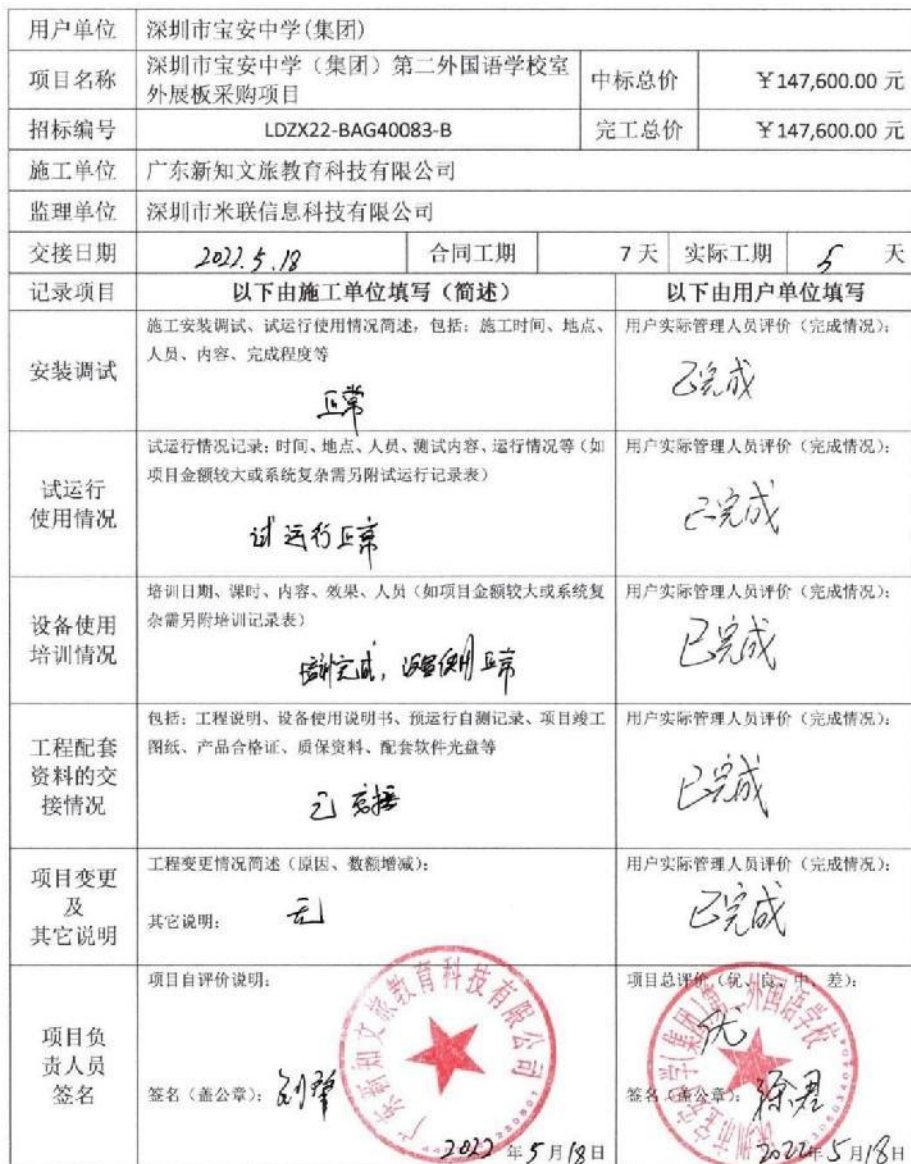 用户单位 深圳市宝安中学(集团)
项目名称 深圳市宝安中学（集团）第二外国语学校室
外展板采购项目 中标总价 ￥147,600.00 元
招标编号 LDZX22-BAG40083-B 完工总价 ￥147,600.00 元
施工单位 广东新知文旅教育科技有限公司
监理单位 深圳市米联信息科技有限公司
交接日期 2022.5.18 合同工期 7 天 实际工期 5 天
记录项目 以下由施工单位填写（简述） 以下由用户单位填写
安装调试
施工安装调试、试运行使用情况简述，包括：施工时间、地点、
人员、内容、完成程度等
正常
用户实际管理人员评价（完成情况）：
已完成
试运行
使用情况
试运行情况记录：时间、地点、人员、测试内容、运行情况等（如
项目金额较大或系统复杂需另附试运行记录表）
试运行正常
用户实际管理人员评价（完成情况）：
已完成
设备使用
培训情况
培训日期、课时、内容、效果、人员（如项目金额较大或系统复
杂需另附培训记录表）
培训完成，设备使用正常
用户实际管理人员评价（完成情况）：
已完成
工程配套
资料的交
接情况
包括：工程说明、设备使用说明书、预运行自测记录、项目竣工
图纸、产品合格证、质保资料、配套软件光盘等
已交接
用户实际管理人员评价（完成情况）：
已完成
项目变更
及
其它说明
工程变更情况简述（原因、数额增减）：
其它说明： 无
用户实际管理人员评价（完成情况）：
已完成
项目负
责人员
签名
项目自评价说明：
广东新知文旅教育科技有限公司
签名（盖公章）：
2022 年 5 月 18 日
项目总评价（优、良、中、差）：
优
深圳市宝安中学(集团)第二外国语学校
签名（盖公章）： 徐君
2022 年 5 月 18 日